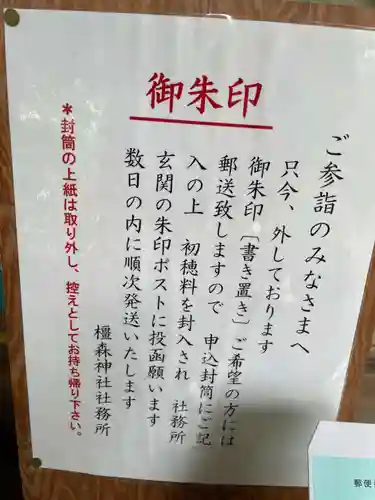 御朱印
ご参詣のみなさまへ
只今、外しております
御朱印〔書き置き〕ご希望の方には
郵送致しますので　申込封筒にご記
入の上　初穂料を封入され　社務所
玄関の朱印ポストに投函願います
数日の内に順次発送いたします
橿森神社社務所
*封筒の上紙は取り外し、控えとしてお持ち帰り下さい。
郵便